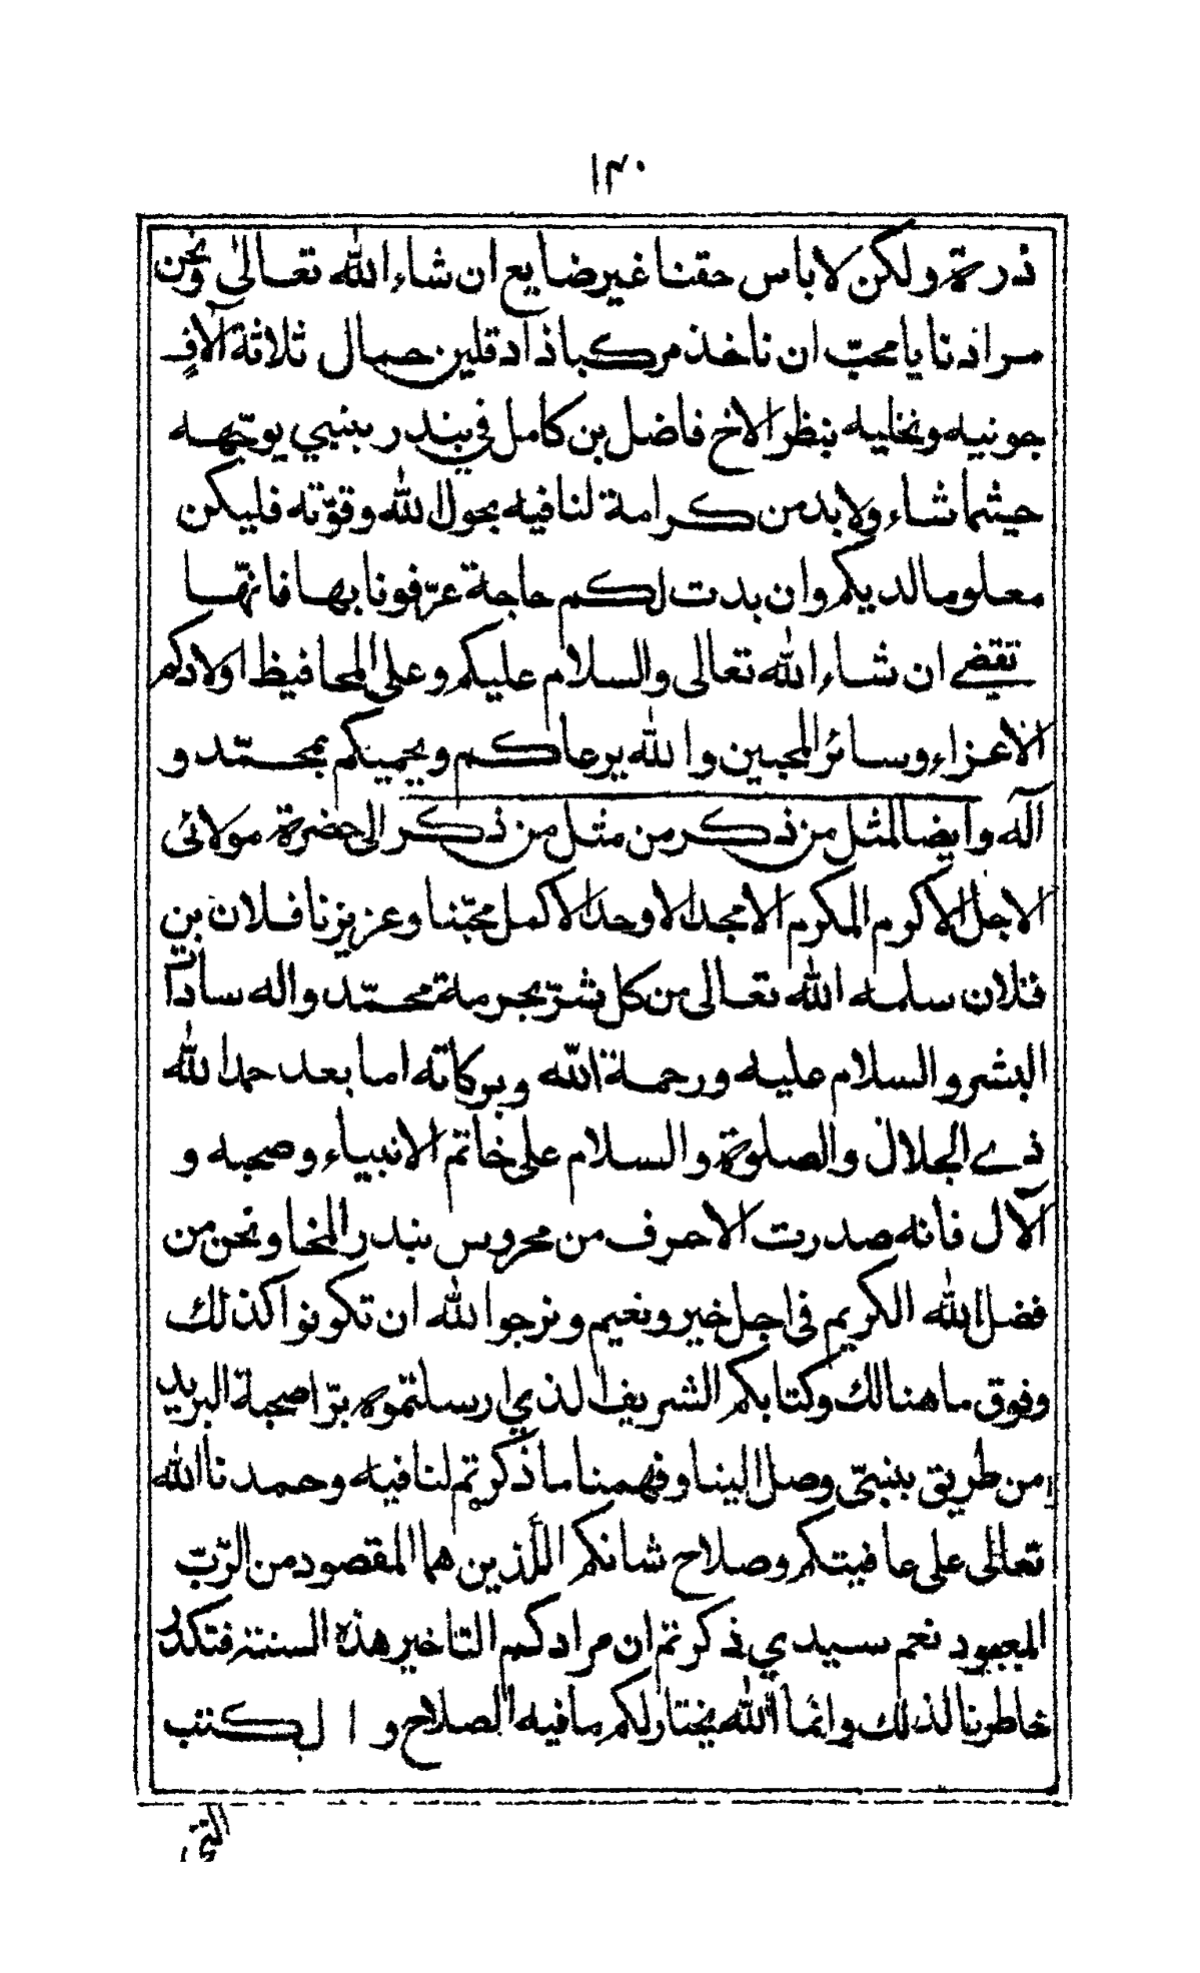 ١٣٠
ذرة ولكن لاباس حقنا غير ضايع ان شاء الله تعالى ونحن
مرادنا يا محبّ ان ناخذ مركبا ذا دقلين حمال ثلاثة آلافٍ
جونيه ونخليه بنظر الاخ فاضل بن كامل في بندر بنبي يوجّهه
حيثما شاء ولابد من كرامة لنا فيه بحول الله وقوّته فليكن
معلوما لديكم وان بدت لكم حاجة عرّفونا بها فانهّا
تقضے ان شاء الله تعالى والسلام عليكم وعلى المحافيظ اولادكم
الاعزاء وسائر المحبين والله يرعاكم ويحميكم بمحمّد و
آله وايضا لمثل من ذكر من مثل من ذكر الى حضرة مولائي
الاجل الاكرم المكرم الامجد الاوحد الاكمل محبّنا وعزيزنا فلان بن
فلان سلمه الله تعالى من كل شرّ بحرمة محمّد واله سادات
البشر والسلام عليه ورحمة الله وبركاته اما بعد حمد الله
ذے الجلال والصلوة والسلام على خاتم الانبياء وصحبه و
الآل فانه صدرت الاحرف من محروس بندر المخا ونحن من
فضل الله الكريم في اجل خير ونعيم ونرجوا لله ان تكونوا كذلك
وفوق ما هنالك وكتابكم الشريف الذي ارسلتموه برّا صحبة البريد
من طريق بنبئ وصل الينا وفهمنا ما ذكرتم لنا فيه وحمدنا الله
تعالى على عافيتكم وصلاح شانكم اللّذين هما المقصود من الرّبّ
المعبود نعم سيدي ذكرتم ان مرادكم التاخير هذه السنة فتكدر
خاطرنا لذلك وانما الله يختار لكم ما فيه الصلاح و ا لكتب
التى